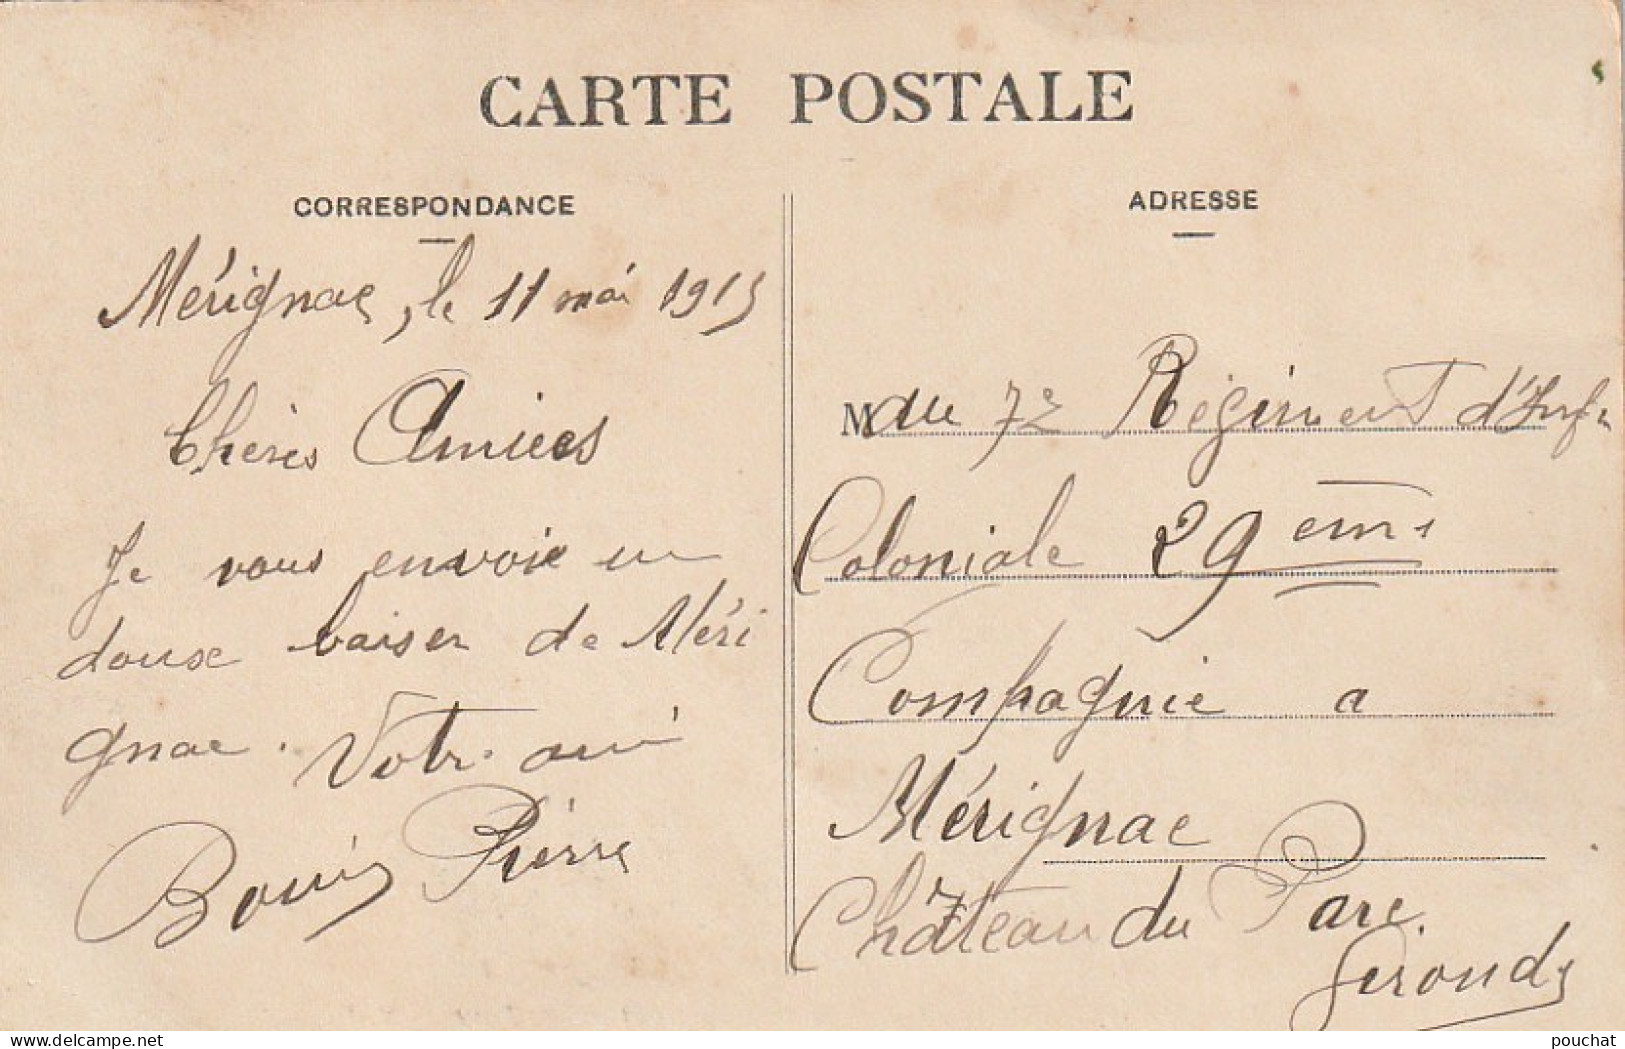 CARTE POSTALE
CORRESPONDANCE
Mérignac, le 11 mai 1915
Chères Amiees
Je vous envoie un
doux baiser de Méri
gnac. Votre ami
Bouis Pierre
ADRESSE
M du 7e Régiment d'Inf
Coloniale 29eme
Compagnie a
Mérignac
Château du Parc
Gironde
pouchat
delcampe.net